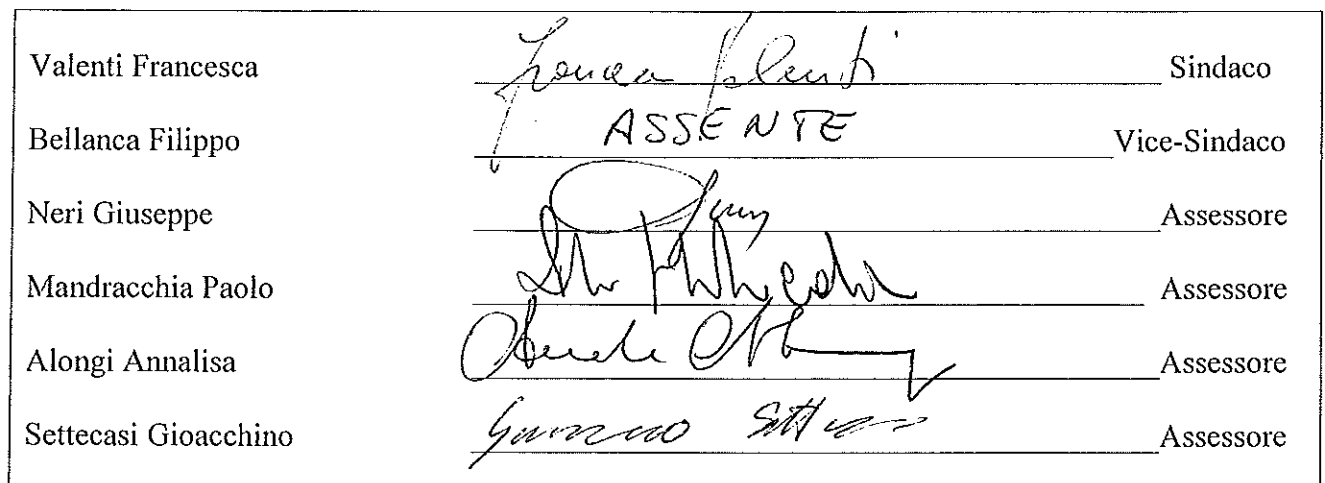 Valenti Francesca Sindaco
Bellanca Filippo ASSENTE Vice-Sindaco
Neri Giuseppe Assessore
Mandracchia Paolo Assessore
Alongi Annalisa Assessore
Settecasi Gioacchino Assessore